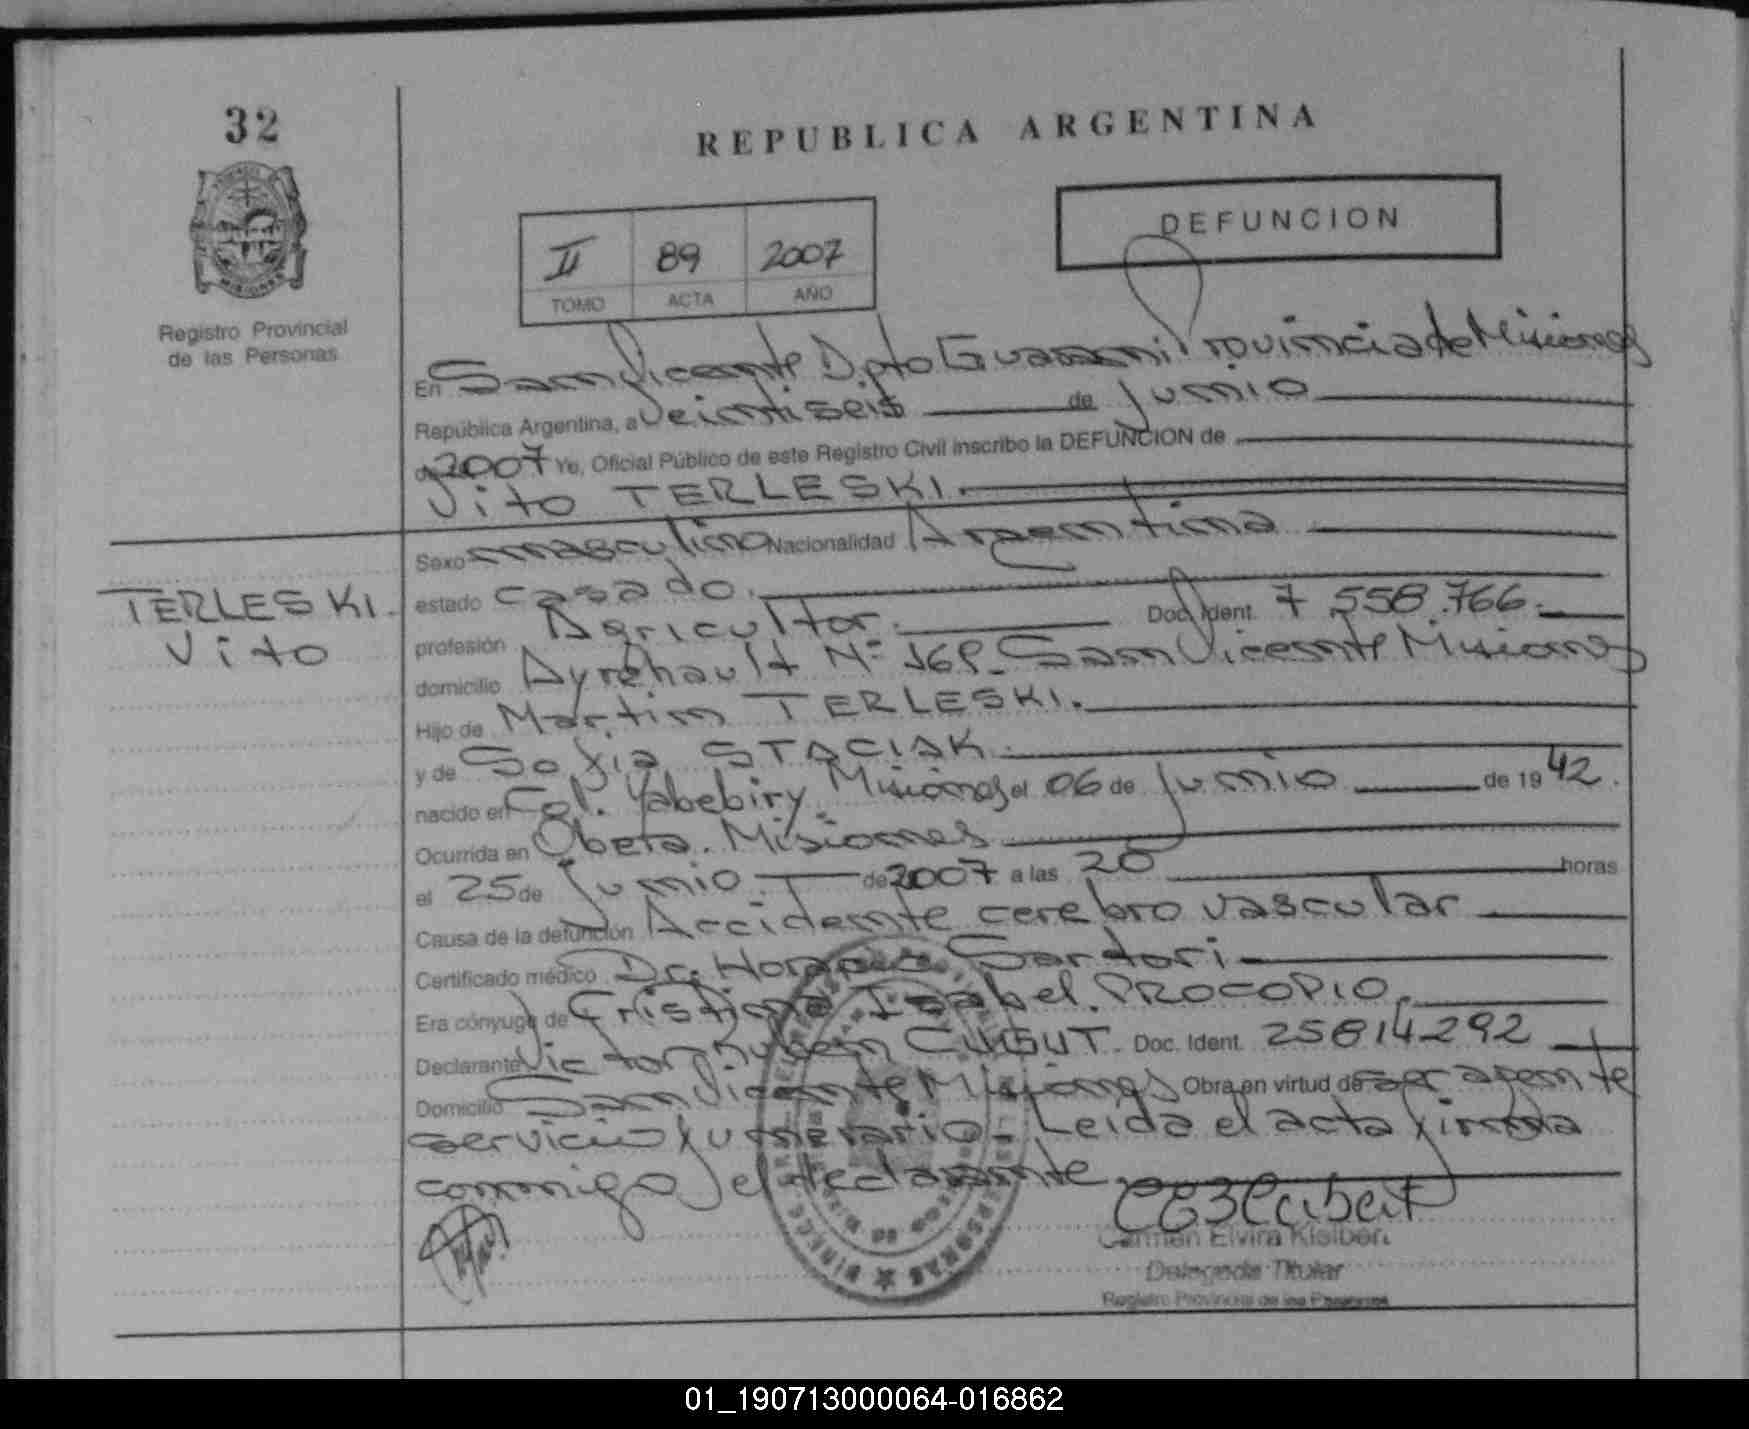 32
REPUBLICA ARGENTINA
DEFUNCION
II 89 2007
TOMO ACTA AÑO
Registro Provincial
de las Personas
En San Vicente Dpto Guarani Provincia de Misiones
República Argentina, a veintiseis de Junio
de 2007 Yo, Oficial Público de este Registro Civil inscribo la DEFUNCION de
Vito TERLESKI.
TERLESKI.
Vito
Sexo masculino Nacionalidad Argentina
estado casado.
profesión Agricultor. Doc. Ident. 7.558.766.
domicilio Ayrehault Nº 168_ San Vicente Misiones
Hijo de Martin TERLESKI.
y de Sofia STACIAK.
nacido en Col. Yabebiry Misiones el 06 de Junio de 1942.
Ocurrida en Obera. Misiones
el 25 de Junio de 2007 a las 20 horas
Causa de la defunción Accidente cerebro vascular
Certificado médico Dr. Sartori
Era cónyuge de Cristina Isabel PROCOPIO.
Declarante Victor Ruben Doc. Ident. 25814292
Domicilio San Vicente Misiones Obra en virtud de ser agente
servicio funerario. Leida el acta firma
conmigo el declarante.
Carmen Elvira Kleibert
Delegada Titular
Registro Provincial de las Personas
01_190713000064-016862